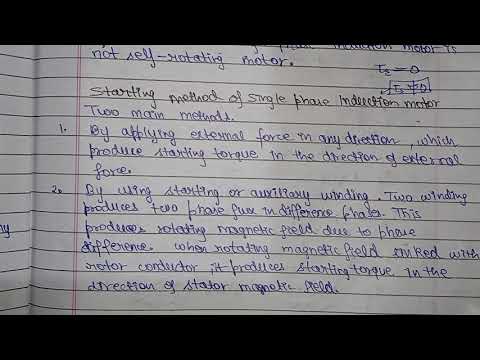 phase induction motor is
not self-rotating motor.
Ts = 0
Ts ≠ 0
Starting method of single phase Induction motor
Two main methods.
1. By applying external force in any direction, which
produce starting torque in the direction of external
force.
2. By using starting or auxiliary winding. Two winding
produces two phase flux in difference phases. This
produces rotating magnetic field due to phase
difference. when rotating magnetic field linked with
rotor conductor it produces starting torque in the
direction of stator magnetic field.